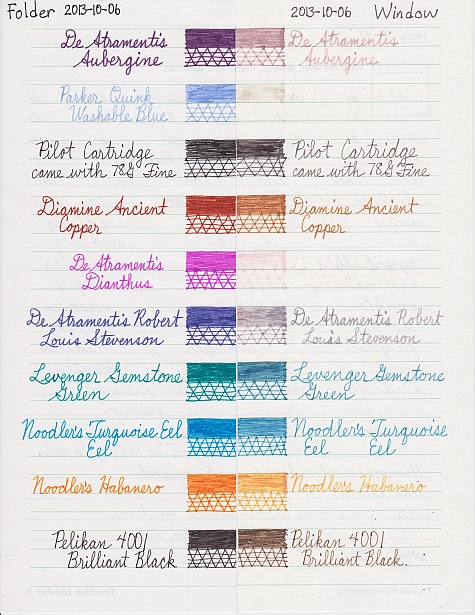 Folder 2013-10-06
2013-10-06 Window
De Atramentis
Aubergine
De Atramentis
Aubergine
Parker Quink
Washable Blue
Pilot Cartridge
came with 78G Fine
Pilot Cartridge
came with 78G Fine
Diamine Ancient
Copper
Diamine Ancient
Copper
De Atramentis
Dianthus
De Atramentis Robert
Louis Stevenson
De Atramentis Robert
Louis Stevenson
Levenger Gemstone
Green
Levenger Gemstone
Green
Noodler's Turquoise Eel
Eel
Noodler's Turquoise
Eel Eel
Noodler's Habanero
Noodler's Habanero
Pelikan 4001
Brilliant Black
Pelikan 4001
Brilliant Black.